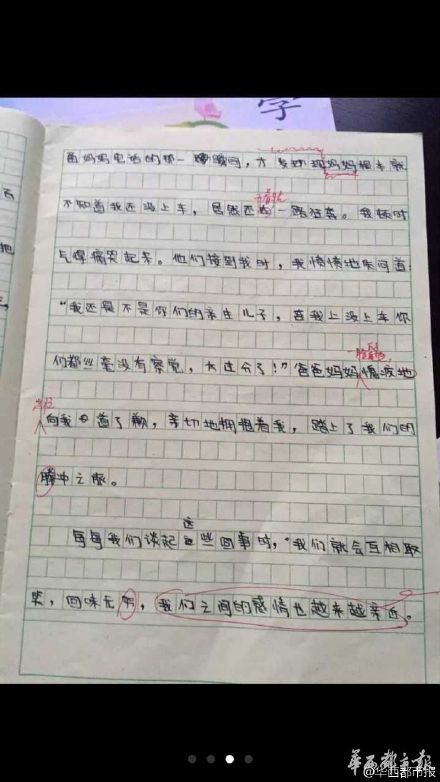 学
看妈妈电话的那一瞬间,才发现妈妈根本就
不知道我还没上车,居然还一路狂奔。我顿时
气得痛哭起来。他们接到我时,我愤愤地质问道:
“我还是不是你们的亲生儿子,连我上没上车你
们都丝毫没有察觉,太过分了!”爸爸妈妈愧疚地
向我道了歉,亲切地拥抱着我,踏上了我们的
腾冲之旅。
每每我们谈起这些回事时,“我们就会互相取
笑,回味无穷,我们之间的感情也越来越亲近。
华西都市报
@华西都市报